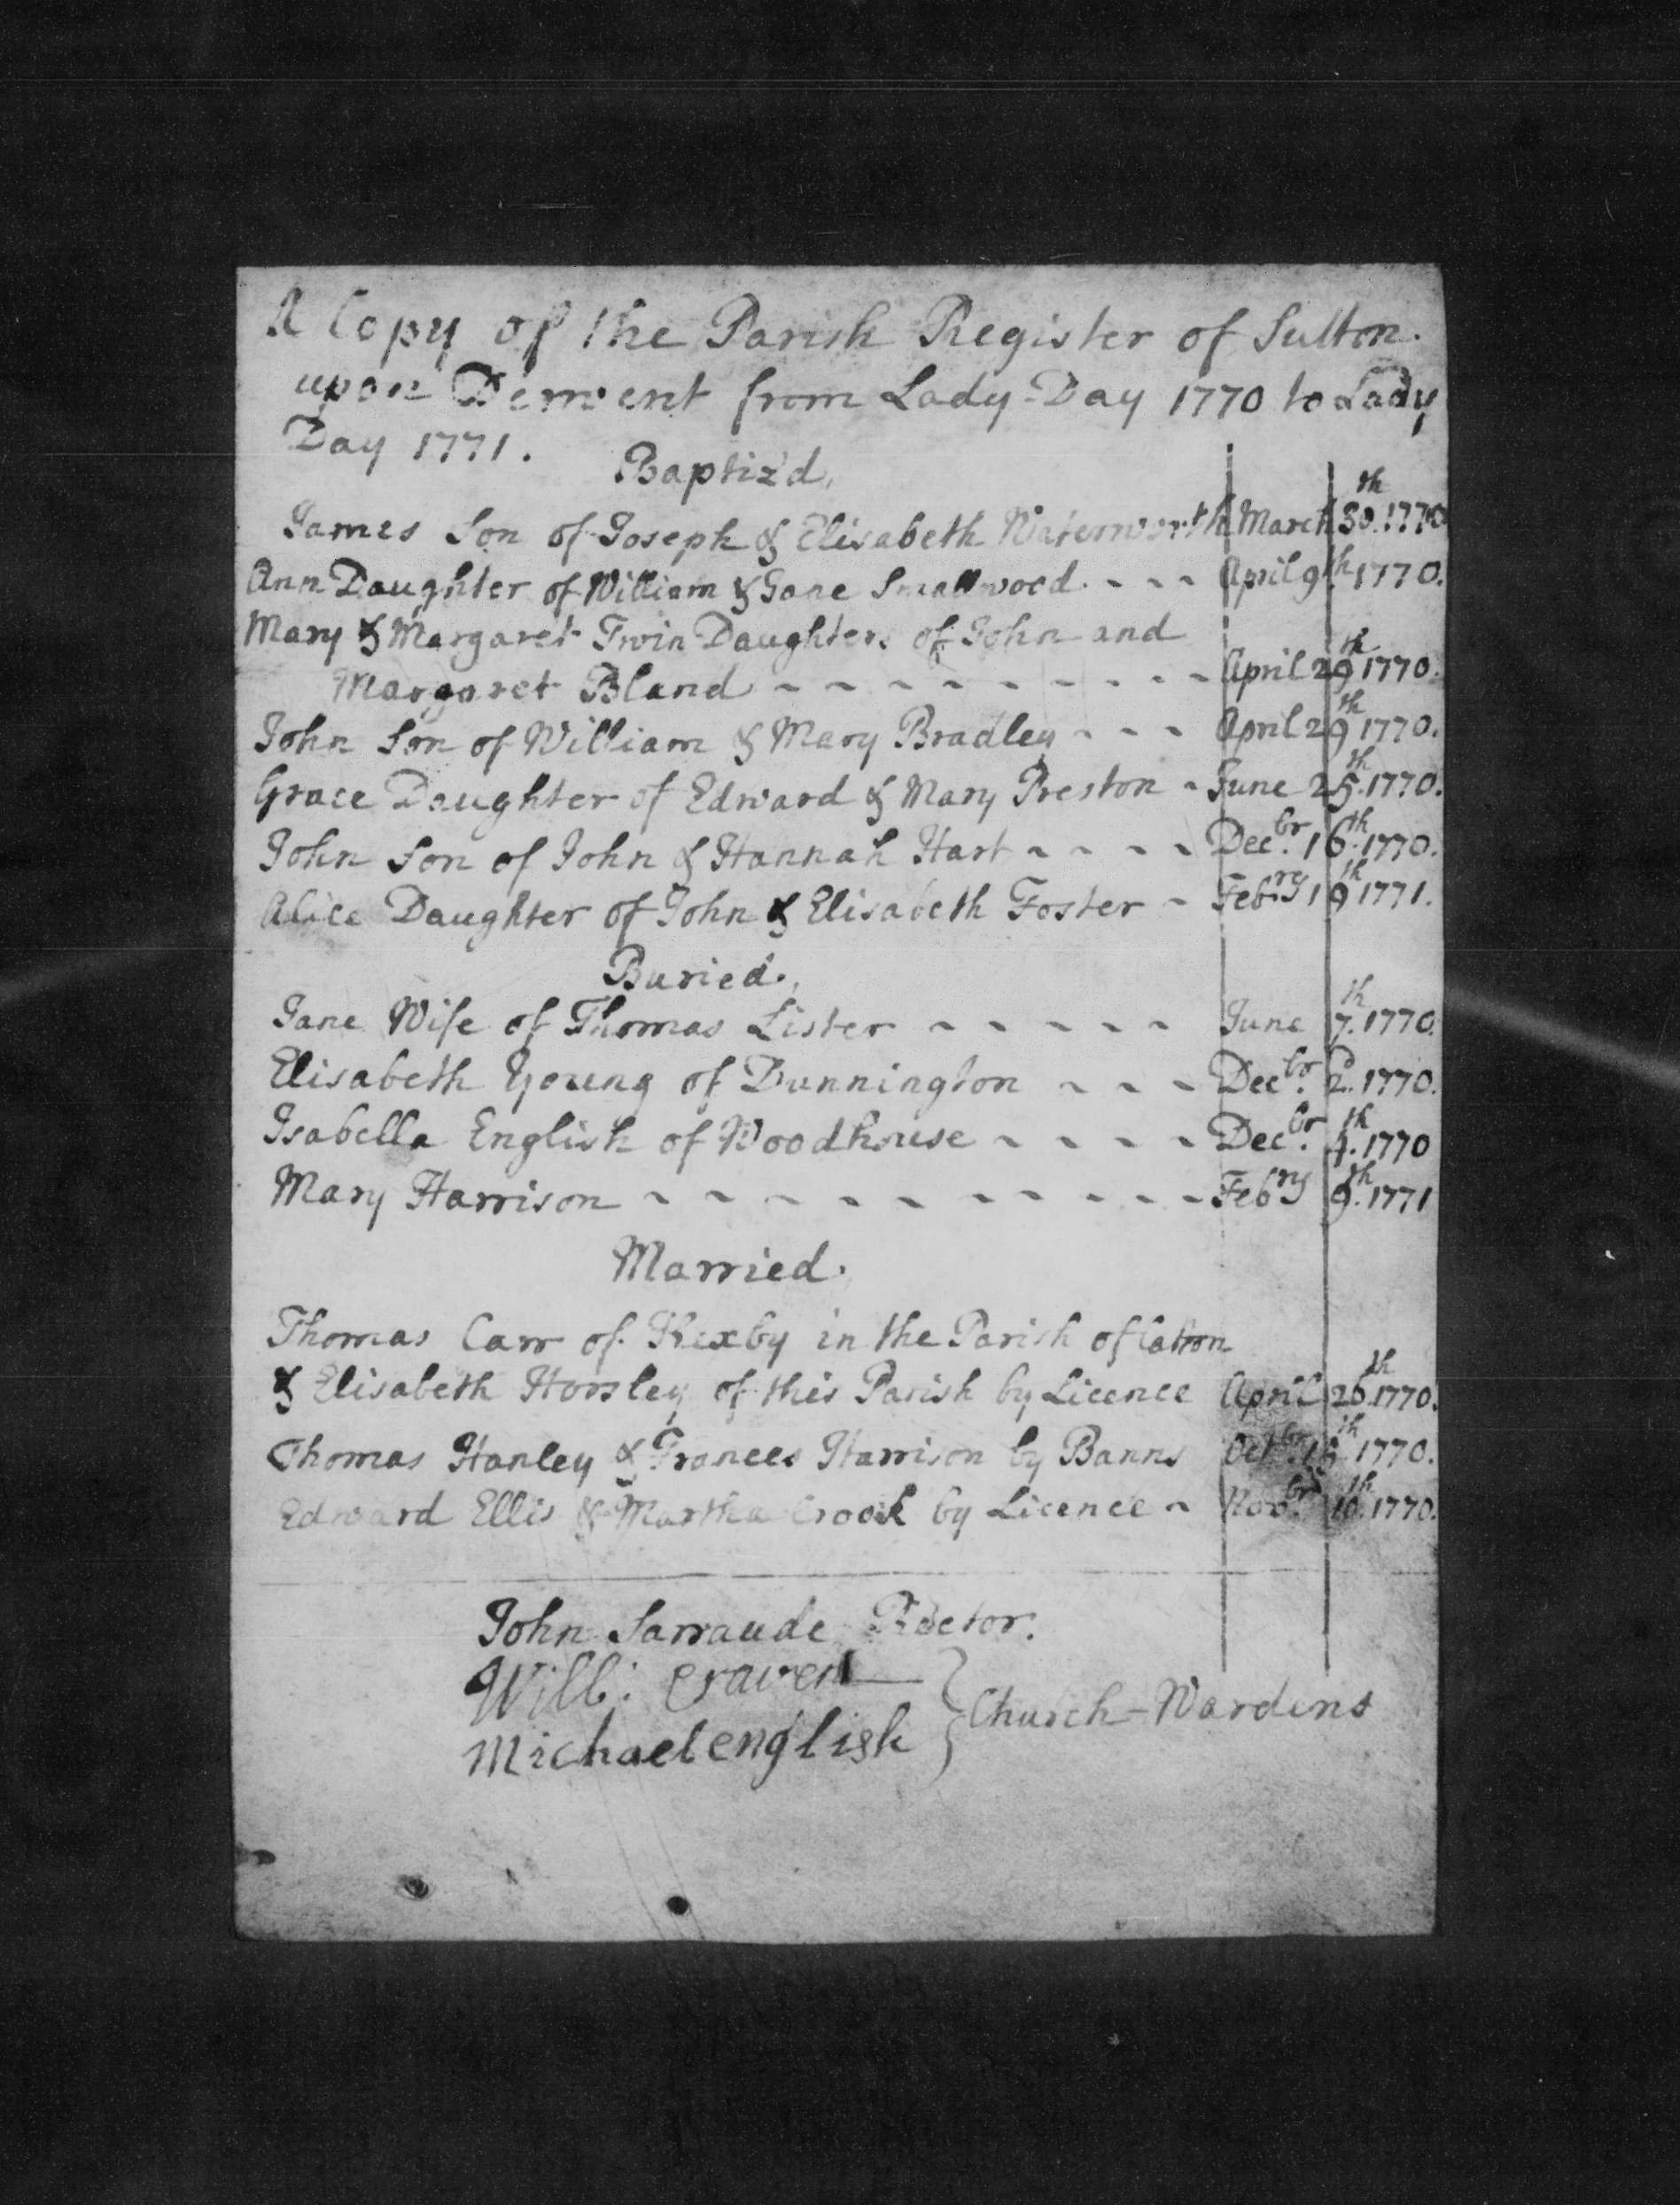 A Copy of the Parish Register of Sutton
upon Derwent from Lady-Day 1770 to Lady
Day 1771.
Baptiz'd.
James Son of Joseph & Elisabeth Waterworth March 30.th 1770
Ann Daughter of William & Jane Smallwood. - - - April 9th. 1770.
Mary & Margaret Twin Daughters of John and
Margaret Bland - - - - - - - - - April 29th 1770.
John Son of William & Mary Bradley - - - April 29th 1770.
Grace Daughter of Edward & Mary Preston - June 25th. 1770.
John Son of John & Hannah Hart - - - - Decbr. 16th. 1770.
Alice Daughter of John & Elisabeth Foster - Febry 19th 1771.
Buried.
Jane Wife of Thomas Lister - - - - - June 7th. 1770.
Elisabeth Young of Dunnington - - - Decbr. 2d. 1770.
Isabella English of Woodhouse - - - - Decbr. 4th. 1770
Mary Harrison - - - - - - - - - - Febry 9th. 1771
Married.
Thomas Carr of Kexby in the Parish of Catton
& Elisabeth Horsley of this Parish by Licence April 26th 1770.
Thomas Hanley & Frances Harrison by Banns Octbr. 1770.
Edward Ellis & Martha Crook by Licence - Novbr. 10th. 1770.
John Sarraude Rector.
Will: Craven
Michael english } Church-Wardens